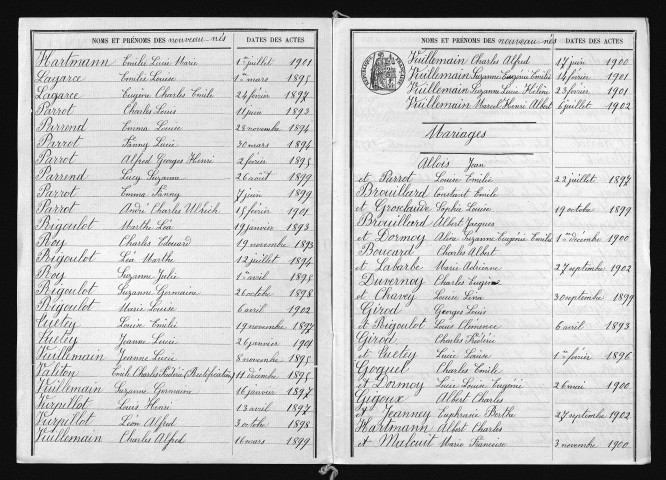 NOMS ET PRÉNOMS DES nouveau-nés DATES DES ACTES
Hartmann Emilie Lucie Marie 1er juillet 1901
Lagarce Emilie Louise 1er mars 1895
Lagarce Eugène Charles Emile 24 février 1897
Parrot Charles Louis 11 juin 1893
Parrend Emma Louise 28 novembre 1894
Parrot Fanny Lucie 30 mars 1894
Parrot Alfred Georges Henri 2 février 1895
Parrend Lucy Suzanne 26 août 1899
Parrot Emma Fanny 7 juin 1899
Parrot André Charles Ulrich 15 février 1901
Rigoulot Marthe Léa 19 janvier 1893
Roy Charles Edouard 19 novembre 1893
Rigoulot Léa Marthe 12 juillet 1894
Roy Suzanne Julie 1er avril 1898
Rigoulot Suzanne Germaine 26 octobre 1898
Rigoulot Marie Louise 6 avril 1902
Louise Emilie 19 novembre 1897
Jeanne Lucie 26 janvier 1901
Vuillemain Jeanne Lucie 8 novembre 1895
Valiton Emile Charles Frédéric (Rectification) 11 décembre 1895
Vuillemain Suzanne Germaine 16 janvier 1897
Vurpillot Louis Henri 13 avril 1897
Vurpillot Léon Alfred 3 octobre 1898
Vuillemain Charles Alfred 16 mars 1899
NOMS ET PRÉNOMS DES nouveau-nés DATES DES ACTES
Vuillemain Charles Alfred 17 juin 1900
Vuillemain Suzanne Eugénie Emilie 14 février 1901
Vuillemain Suzanne Lucie Hélène 23 février 1901
Vuillemain Marcel Henri Albert 6 juillet 1902
Mariages
Allois Jean
et Parrot Louise Emilie 22 juillet 1897
Brouillard Constant Emile
et Grosclaude Sophie Louise 19 octobre 1899
Brouillard Albert Jacques
et Dormoy Alice Suzanne Eugénie Emilie 1er décembre 1900
Boucard Charles Albert
et Labarbe Marie Adrienne 27 septembre 1902
Duvernoy Charles Eugène
et Chavey Louise Lina 30 septembre 1899
Girod Georges Louis
et Rigoulot Louise Clémence 6 avril 1893
Girod Charles Frédéric
et Lucie Louise 1er février 1896
Goguel Charles Emile
et Dormoy Lucie Louise Eugénie 26 mai 1900
Gigoux Albert Charles
et Jeanney Euphrasie Berthe 27 septembre 1902
Hartmann Albert Charles
et Malcuit Marie Françoise 3 novembre 1900